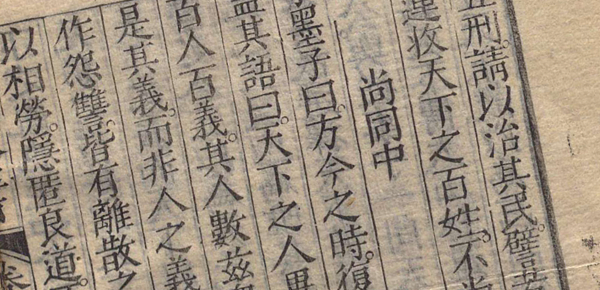 刑請以治其民。譬
連收天下之百姓。不
尚同中
墨子曰。方今之時。復
蓋其語曰。天下之人異
百人百義。其人數茲
是其義。而非人之義
作怨讐。皆有離散之
以相勞。隱匿良道。